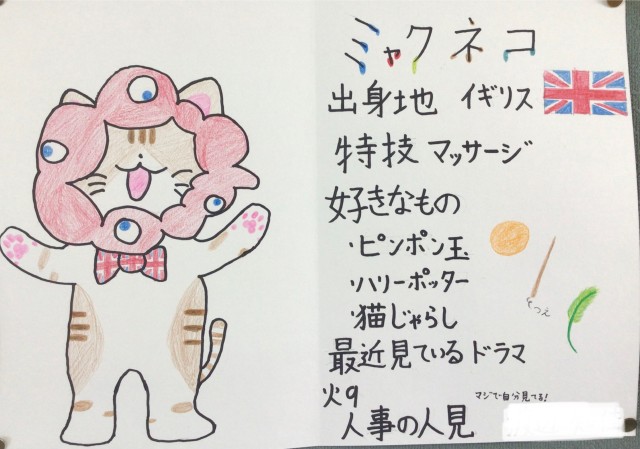 ミャクネコ
出身地 イギリス
特技 マッサージ
好きなもの
・ピンポン玉
・ハリーポッター
・猫じゃらし
↑つえ
最近見ているドラマ
火9
マジで自分見てる!
人事の人見